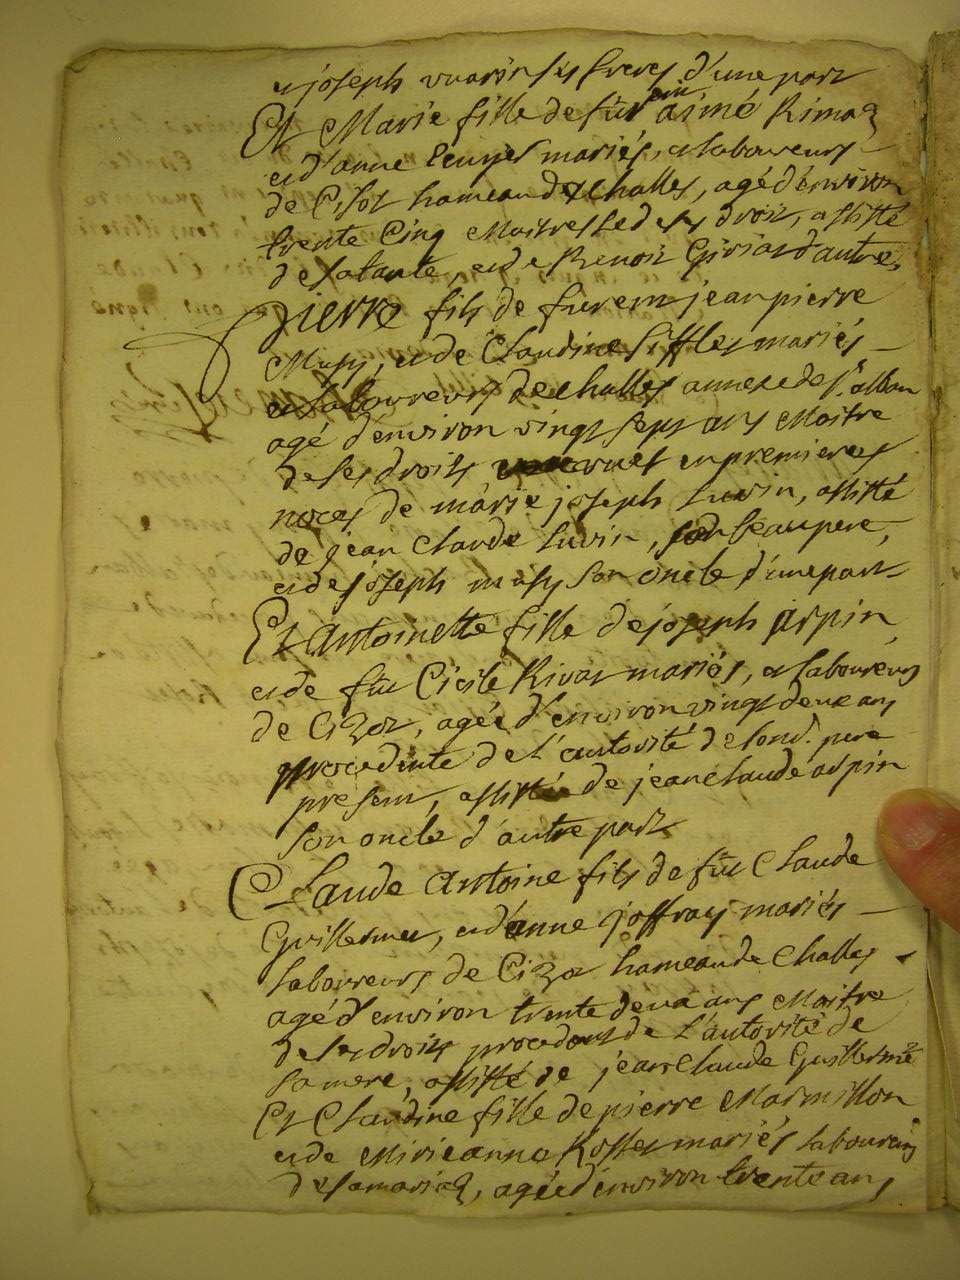 et joseph vuarin ses freres d'une part
Et Marie fille de fût aimé Rimaz
et d'anne Ecuyer mariés, et laboureurs
de Cisot hameau de challes, agé d'environ
trente Cinq Maitresse de ses droit, assisté
de sa tante, et de Benoit Giriat d'autre,
Pierre fils de jean pierre
Musy, et de Claudine Sifflet mariés
et laboureurs de challes annexe de st alban
agé d'environ vingt sept ans Maitre
de ses droits en premieres
noces de marie joseph Luvin, assisté
de jean Claude Luvin, son beaupere,
et de joseph musy son oncle d'une part
Et Antoinette fille de joseph Arpin
et de fût Cicile Rivat mariés, et laboureurs
de Cizot, agée d'environ vingt deux ans
procedente de l'autorité de sond. pere
present, assistée de jean claude arpin
son oncle d'autre part
Claude Antoine fils de fût Claude
Guillermet, et d'anne joffray mariés
laboureurs de Cizot hameau de Challes
agé d'environ trente deux ans Maitre
de ses droits procedant de l'autorité de
sa mere, assisté de jean Claude Guillermet
Et Claudine fille de pierre Marmillon
et de Mirieanne Rosset mariés laboureurs
de samariaz, agée d'environ trente ans